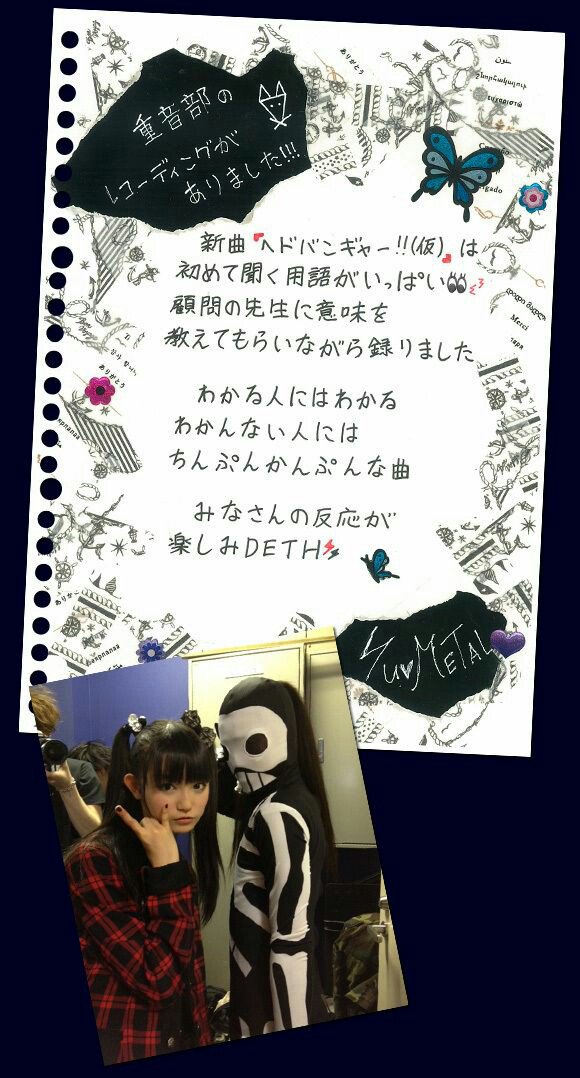 重音部の
レコーディングが
ありました!!!
新曲『ヘドバンギャー!!(仮)』は
初めて聞く用語がいっぱい
顧問の先生に意味を
教えてもらいながら録りました
わかる人にはわかる
わかんない人には
ちんぷんかんぷんな曲
みなさんの反応が
楽しみDETH
ありがとう
Merci
ありがとう
YUI METAL